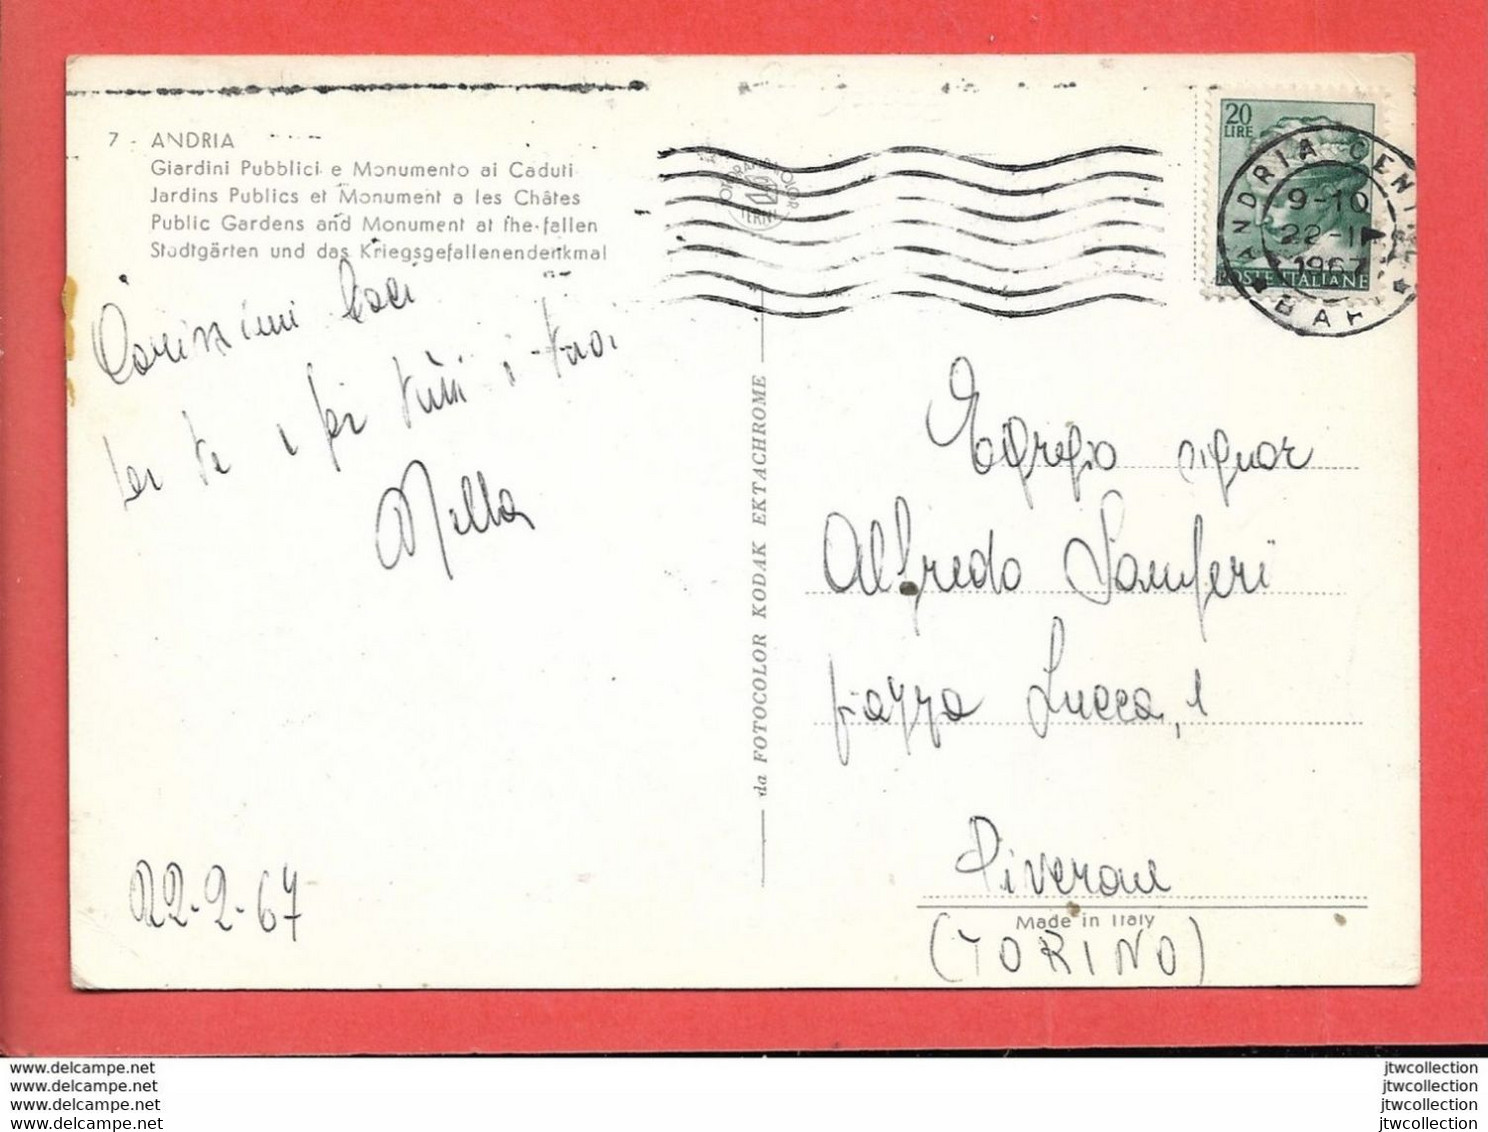 7 - ANDRIA
Giardini Pubblici e Monumento ai Caduti
Jardins Publics et Monument a les Châtes
Public Gardens and Monument at the fallen
Stadtgärten und das Kriegsgefallenendenkmal
20
LIRE
ANDRIA CENTRO
9-10
22-II
1967
POSTE ITALIANE
BARI
Carissimi baci
per te e per tutti i tuoi
Nella
22-2-67
da FOTOCOLOR KODAK EKTACHROME
Egregio signor
Alfredo Samferi
piazza Lucca, 1
Piverone
Made in Italy
(TORINO)
www.delcampe.net
www.delcampe.net
www.delcampe.net
www.delcampe.net
jtwcollection
jtwcollection
jtwcollection
jtwcollection